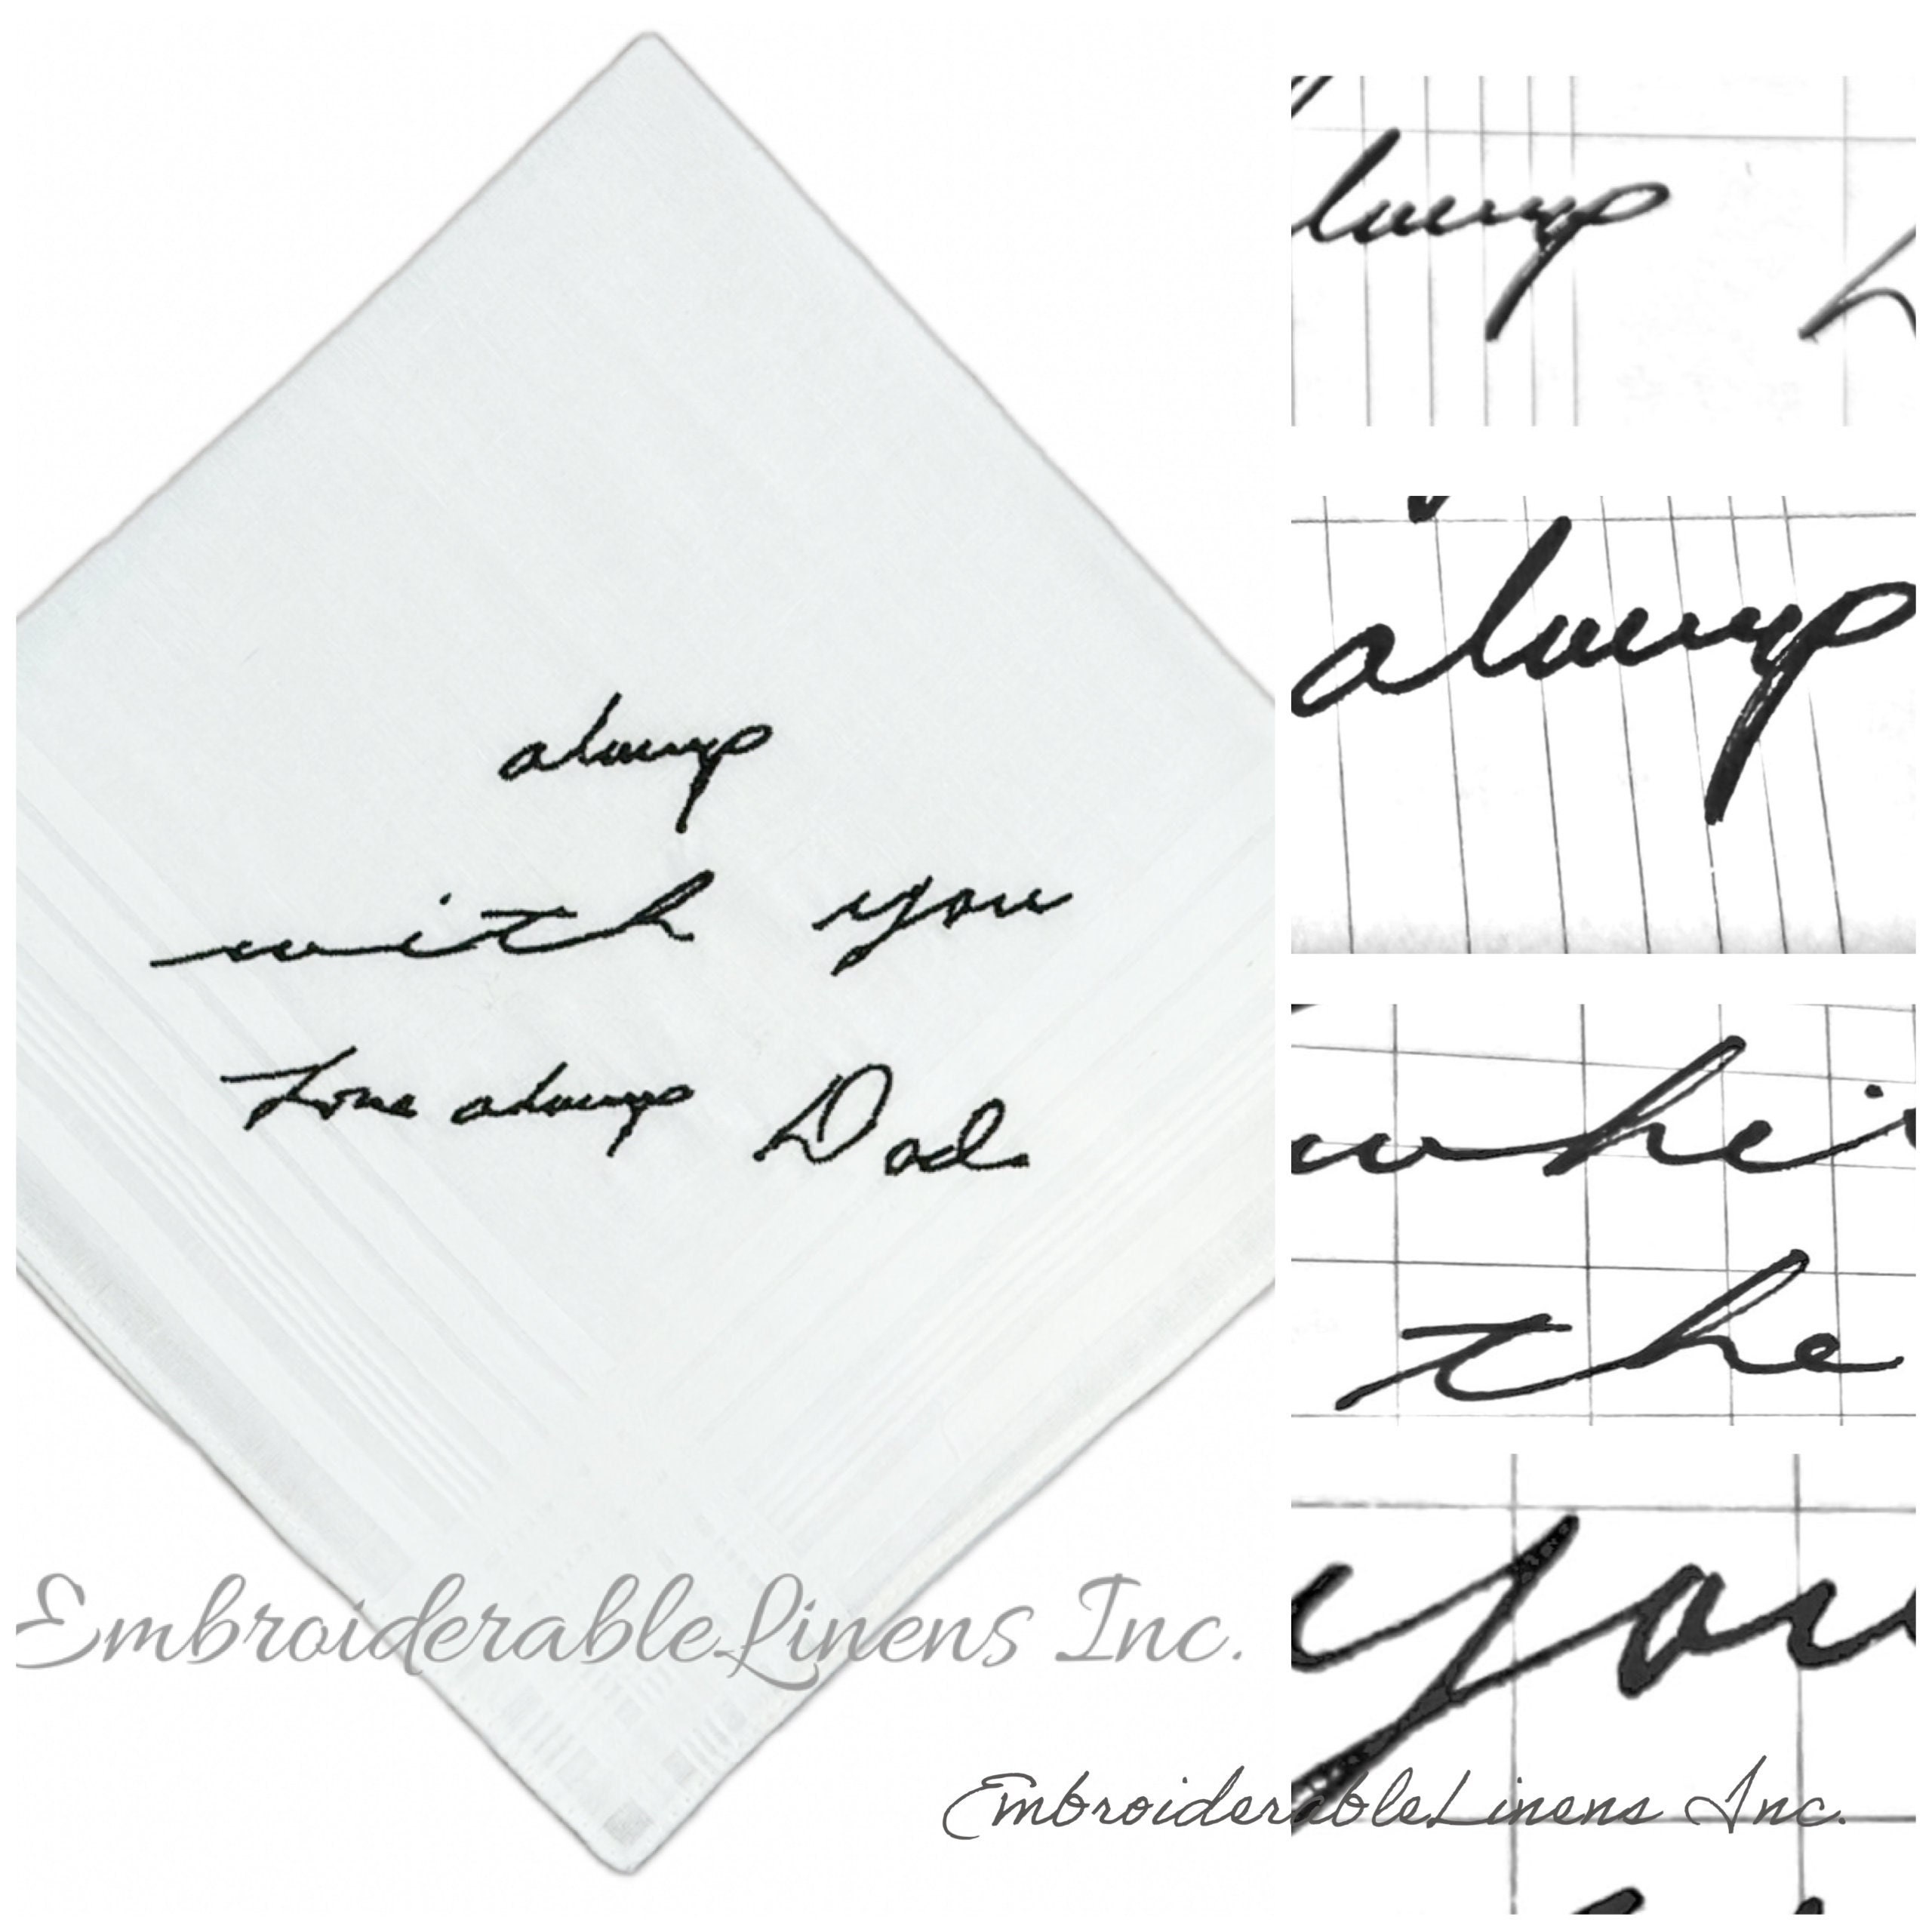 always
with you
Love always Dad
EmbroiderableLinens Inc.
always
always
whi
the
you
EmbroiderableLinens Inc.